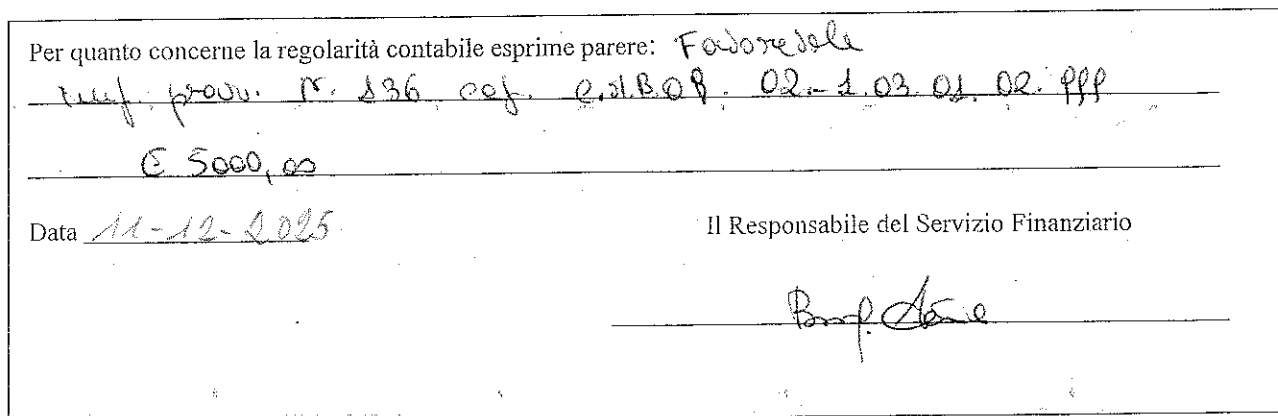 Per quanto concerne la regolarità contabile esprime parere: Favorevole
prov. N. 136 02.-1.03.01.02.999
€ 5000,00
Data 11-12-2025 Il Responsabile del Servizio Finanziario